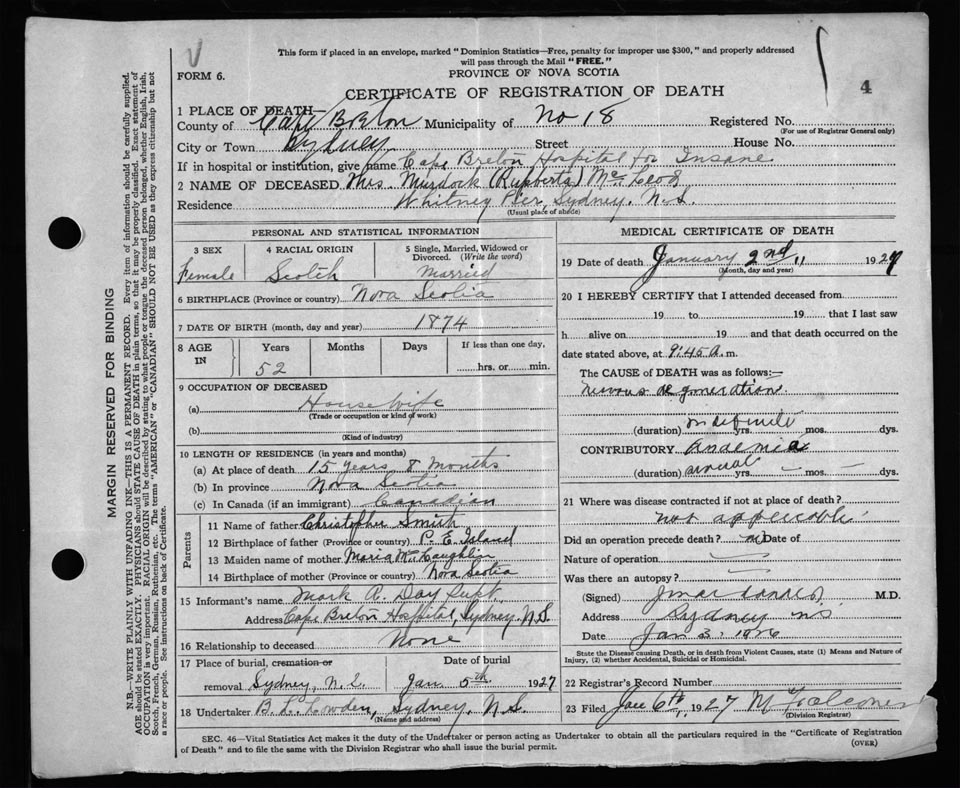 This form if placed in an envelope, marked "Dominion Statistics—Free, penalty for improper use $300," and properly addressed
will pass through the Mail "FREE."
PROVINCE OF NOVA SCOTIA
FORM 6.
CERTIFICATE OF REGISTRATION OF DEATH
4
1 PLACE OF DEATH—
County of Cape Breton Municipality of No 18 Registered No.
(For use of Registrar General only)
City or Town Sydney Street House No.
If in hospital or institution, give name Cape Breton Hospital for Insane
2 NAME OF DECEASED Mrs. Murdock (Rupberta) McLeod
Residence Whitney Pier, Sydney. N.S.
(Usual place of abode)
PERSONAL AND STATISTICAL INFORMATION
3 SEX 4 RACIAL ORIGIN 5 Single, Married, Widowed or
Divorced. (Write the word)
Female Scotch Married
6 BIRTHPLACE (Province or country) Nova Scotia
7 DATE OF BIRTH (month, day and year) 1874
8 AGE IN Years Months Days If less than one day,
52 hrs. or min.
9 OCCUPATION OF DECEASED
(a) House Wife
(Trade or occupation or kind of work)
(b)
(Kind of industry)
10 LENGTH OF RESIDENCE (in years and months)
(a) At place of death 15 years 8 Months
(b) In province Nova Scotia
(c) In Canada (if an immigrant) Canadian
Parents
11 Name of father Christopher Smith
12 Birthplace of father (Province or country) P. E. Island
13 Maiden name of mother Maria McLaughlin
14 Birthplace of mother (Province or country) Nova Scotia
15 Informant's name Mark A. Day Supt
Address Cape Breton Hospital, Sydney N.S.
16 Relationship to deceased None
17 Place of burial, cremation or Date of burial
removal Sydney, N.S. Jan. 5th. 1927
18 Undertaker Sydney, N.S.
(Name and address)
MEDICAL CERTIFICATE OF DEATH
19 Date of death January 2nd 1927
(Month, day and year)
20 I HEREBY CERTIFY that I attended deceased from
19 to 19 that I last saw
h alive on 19 and that death occurred on the
date stated above, at 9:45 a. m.
The CAUSE of DEATH was as follows:—
nervous degeneration
indefinite
(duration) yrs. mos. dys.
CONTRIBUTORY Anaemia
(duration) several yrs. mos. dys.
21 Where was disease contracted if not at place of death?
not applicable
Did an operation precede death? no Date of
Nature of operation
Was there an autopsy?
(Signed) M.D.
Address Sydney N.S.
Date Jan 3, 1926
State the Disease causing Death, or in death from Violent Causes, state (1) Means and Nature of
Injury, (2) whether Accidental, Suicidal or Homicidal.
22 Registrar's Record Number
23 Filed Jan 6th, 1927
(Division Registrar)
SEC. 46—Vital Statistics Act makes it the duty of the Undertaker or person acting as Undertaker to obtain all the particulars required in the "Certificate of Registration
of Death" and to file the same with the Division Registrar who shall issue the burial permit.
(OVER)
MARGIN RESERVED FOR BINDING
N.B.—WRITE PLAINLY WITH UNFADING INK—THIS IS A PERMANENT RECORD. Every item of information should be carefully supplied.
AGE should be stated EXACTLY. PHYSICIANS should STATE CAUSE OF DEATH in plain terms, so that it may be properly classified. Exact statement of
OCCUPATION is very important. RACIAL ORIGIN will be described by stating to what people or tongue the deceased person belonged, whether English, Irish,
Scotch, French, German, Russian, Ruthenian, etc. The terms "AMERICAN" or "CANADIAN" SHOULD NOT BE USED as they express citizenship but not
a race or people. See instructions on back of Certificate.